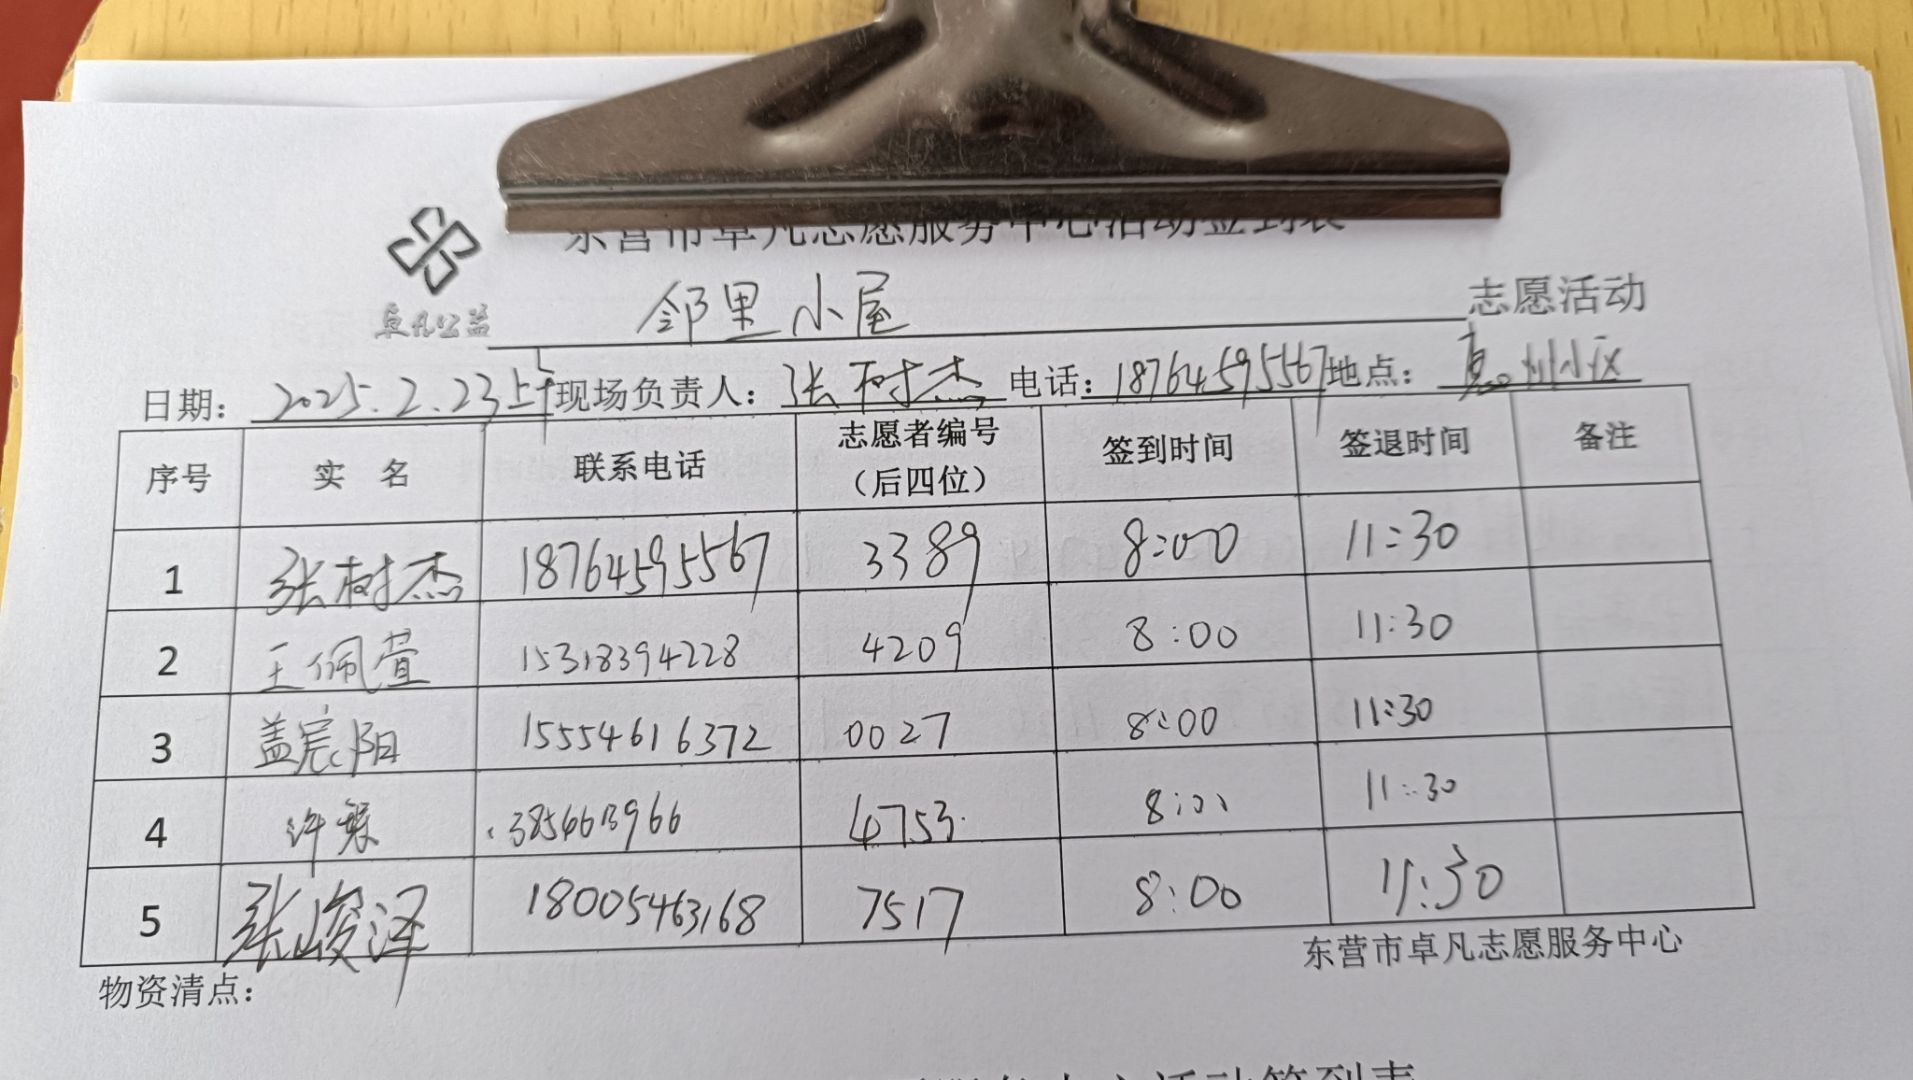 东营市卓凡志愿服务中心活动签到表
卓凡公益
邻里小屋 志愿活动
日期: 2025.2.23上午 现场负责人: 张树杰 电话: 18764595567 地点: 小区
序号 实名 联系电话 志愿者编号(后四位) 签到时间 签退时间 备注
1 张树杰 18764595567 3389 8:00 11:30
2 王佩萱 15318394228 4209 8:00 11:30
3 盖宸阳 15554616372 0027 8:00 11:30
4 许 4753 11:30
5 张峻泽 18005463168 7517 8:00 11:30
东营市卓凡志愿服务中心
物资清点:
活动签到表